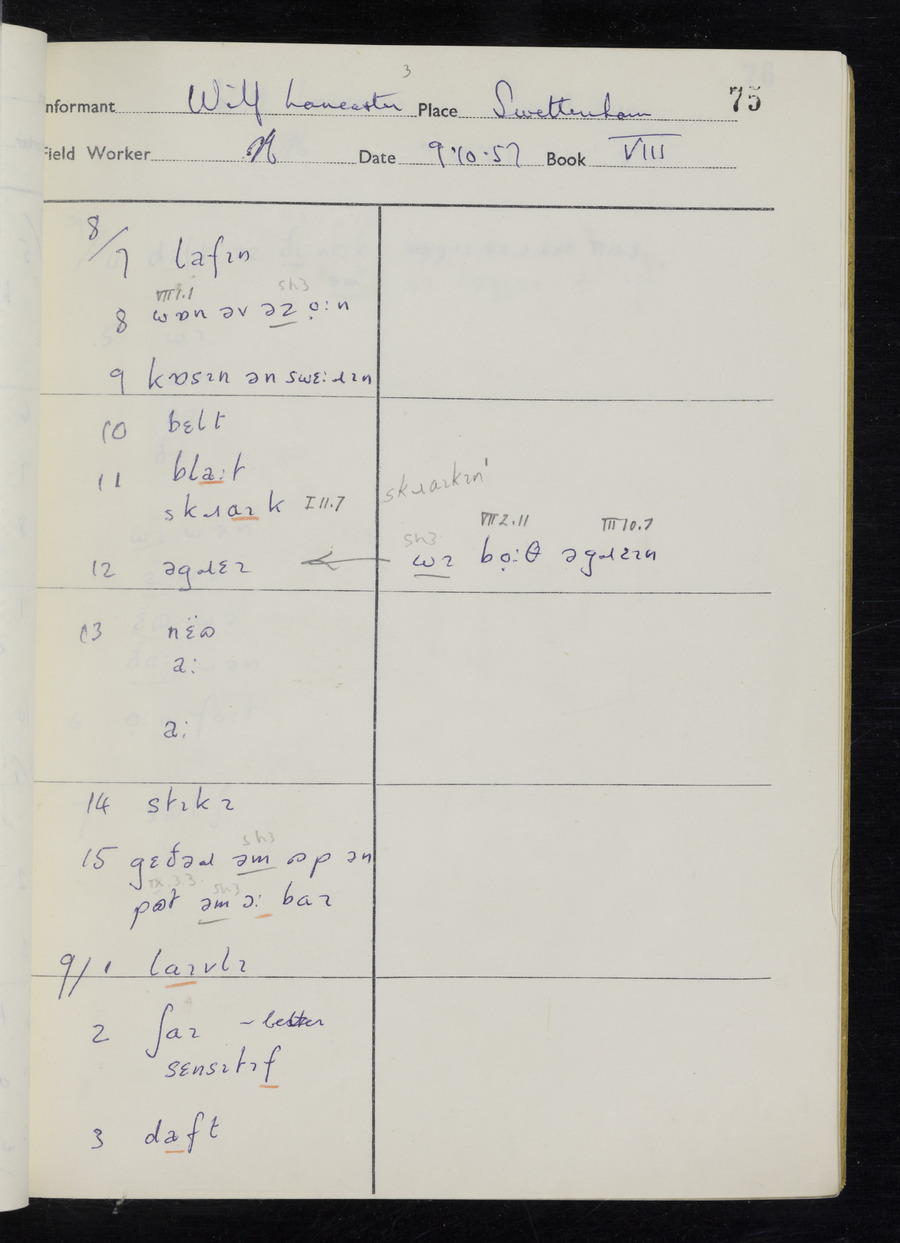 3
Informant Wilf Lancaster Place Swettenham 75
Field Worker Date 9.10.57 Book VIII
8/7 lafɪn
VII1.1 sh3
8 wɒn əv əz ọːn
9 kɒsɪn ən swɛːɹɪn
10 bɛlt
11 blaːt skɹaɪkɪn'
skɹaɪk I11.7
sh3 VII2.11 III10.7
12 əgɹɛɪ ← wɪ bọːθ əgɹɛɪn
13 nɛ̈ɷ
aː
aː
14 stɪkɪ
sh3
15 gɛðəɹ əm ɷp ən
IX.3.3. sh3
pɷt əm ɔː baɪ
9/1 laɪvlɪ
2 ʃaɪ – better
sɛnsɪtɪf
3 daft